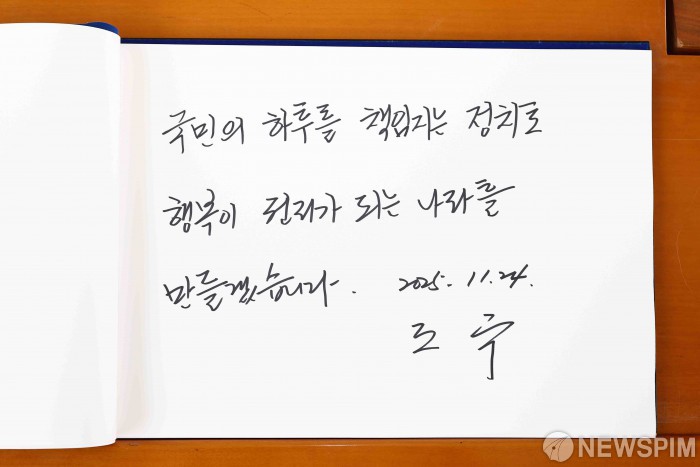 국민의 하루를 책임지는 정치로
행복이 먼저가 되는 나라를
만들겠습니다. 2025. 11. 24.
조국
NEWSPIM